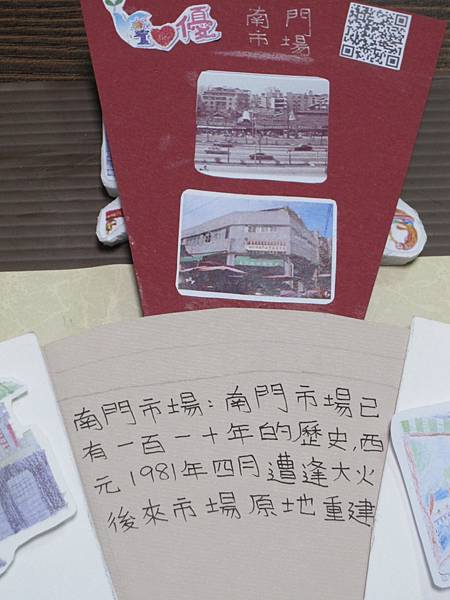 優
南門
市場
南門市場：南門市場已
有一百一十年的歷史,西
元1981年四月遭逢大火
後來市場原地重建